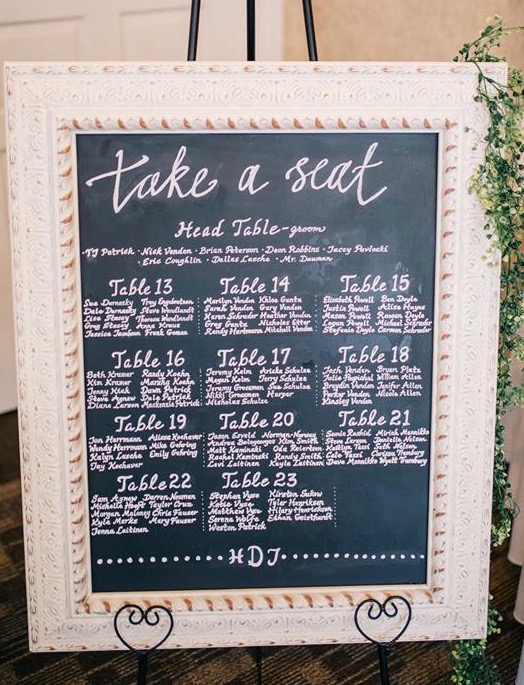 take a seat
Head Table - groom
· TJ Patrick · Nick Venden · Brian Peterson · Dean Robbins · Jacey Pavloski
Eric Coughlin · Dallas Lasche · Mr. Dauman
Table 13
Sue Dornesky Troy Engdretson
Dale Dornesky Steve Wendlandt
Lisa Stacey Theresa Wendlandt
Greg Stacey Anna Kraus
Jessica Jansson Frank Gomez
Table 14
Marilyn Venden Khloe Gantz
Sarah Venden Gary Venden
Karen Schroder Heather Venden
Greg Gantz Nicholas Etter
Randy Hermsen Mitchell Venden
Table 15
Elizabeth Powell Ben Doyle
Justin Powell Alisa Hayes
Mason Powell Rowan Doyle
Logan Powell Micheal Schrader
Stefanie Doyle Carmen Schrader
Table 16
Beth Kramer Randy Koehn
Kim Kramer Marsha Koehn
Jenny Kick Dawn Patrick
Steve Agnew Dale Patrick
Diane Larson Mackenzie Patrick
Table 17
Jeremy Keim Arieka Schulze
Megan Keim Jerry Schulze
Jeremy Greeman Sue Schulze
Nikki Greeman Harper
Nicholas Schulze
Table 18
Josh Venden Bryan Platz
Julia William Allen
Brayden Venden Jenifer Allen
Parker Venden Nicole Allen
Kinsley Venden
Table 19
Jon Herrmann Alissa Kochever
Wendy Herrmann Mike Gehring
Kalyn Lasche Emily Gehring
Jay Kochaver
Table 20
Jason Ervold Norman Norway
Andrea Kim Smith
Matt Kaminski Ode Reierson
Rachel Kaminski Randy Smith
Levi Laitinen Kayla Laitinen
Table 21
Sonia Rashid Mariah Mannikko
Steve Larson Danielle Nelson
Kaitlyn Tassi Seth Nelson
Cole Tassi Carissa Tramburg
Dave Mannikko Wyatt Tramburg
Table 22
Sam Agnew Darren Newman
Michelle Hooft Taylor Cruz
Morgan Maloney Chris Fauser
Kyle Marks Mary Fauser
Jenna Laitinen
Table 23
Stephen Vyse Kirsten Sukow
Katie Vyse Tyler Henrikson
Matthew Vyse Hilary Henrickson
Serena Wolfe Ethan Geisthardt
Weston Patrick
HDJ